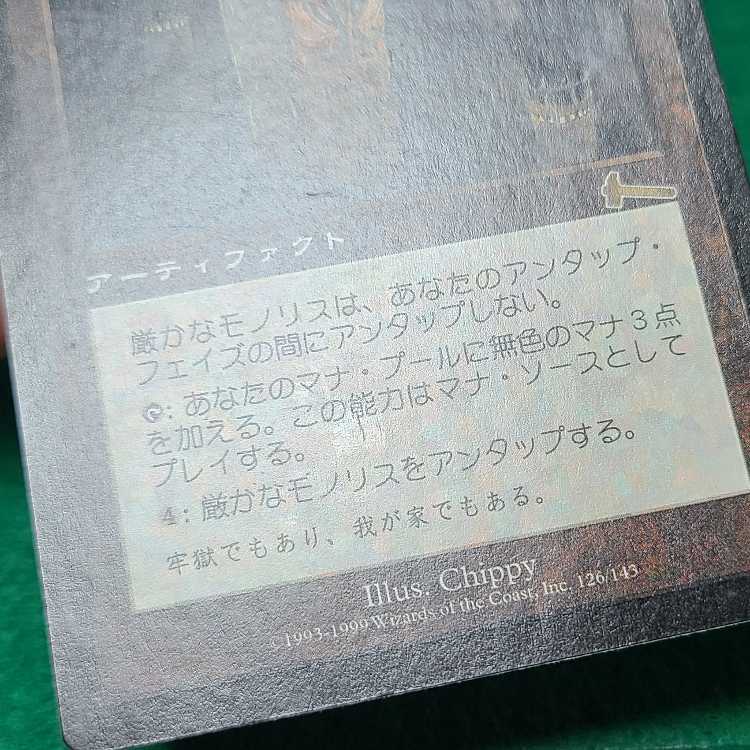 アーティファクト
厳かなモノリスは、あなたのアンタップ・
フェイズの間にアンタップしない。
: あなたのマナ・プールに無色のマナ３点
を加える。この能力はマナ・ソースとして
プレイする。
4: 厳かなモノリスをアンタップする。
牢獄でもあり、我が家でもある。
Illus. Chippy
©1993-1999 Wizards of the Coast, Inc. 126/143